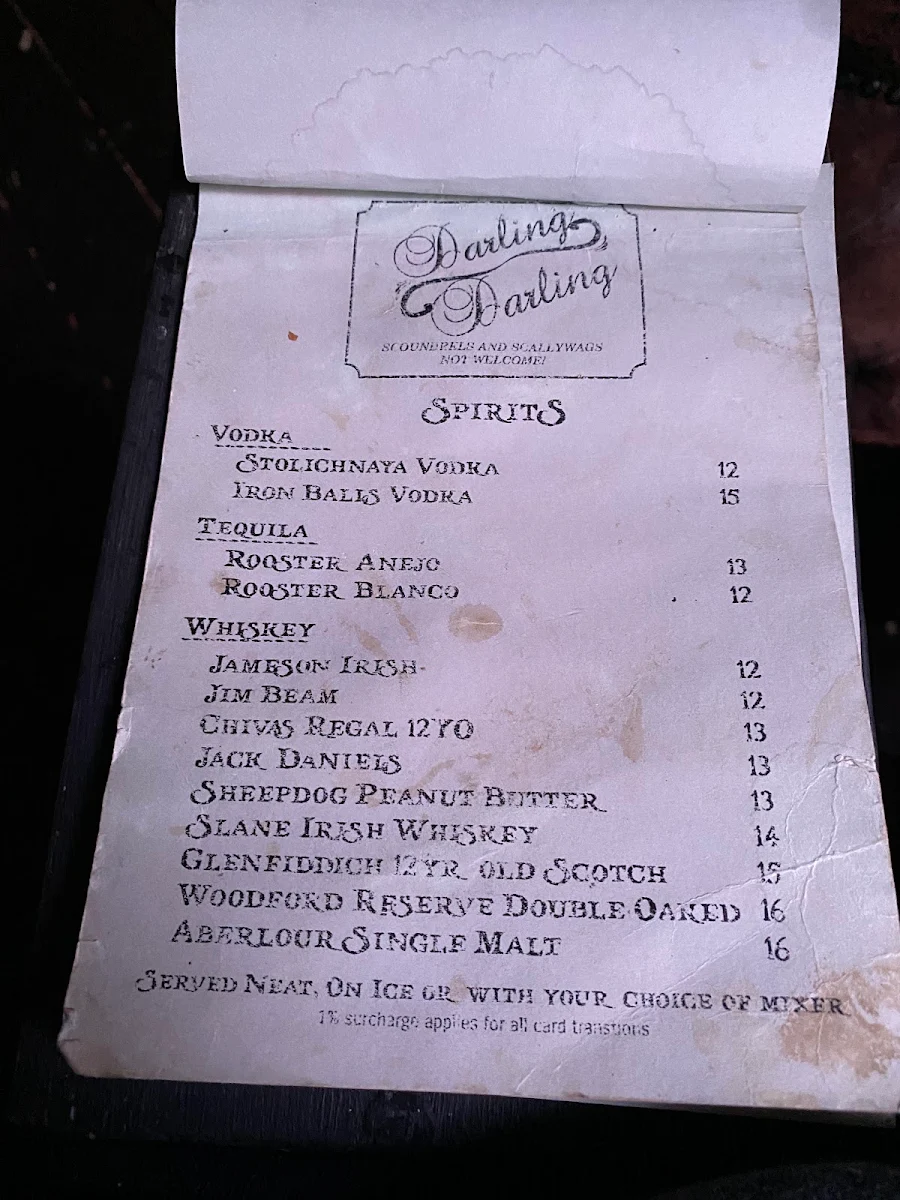 Darling
Darling
SCOUNDRELS AND SCALLYWAGS
NOT WELCOME!
SPIRITS
VODKA
STOLICHNAYA VODKA 12
IRON BALLS VODKA 15
TEQUILA
ROOSTER ANEJO 13
ROOSTER BLANCO 12
WHISKEY
JAMESON IRISH 12
JIM BEAM 12
CHIVAS REGAL 12YO 13
JACK DANIELS 13
SHEEPDOG PEANUT BUTTER 13
SLANE IRISH WHISKEY 14
GLENFIDDICH 12YR OLD SCOTCH 15
WOODFORD RESERVE DOUBLE OAKED 16
ABERLOUR SINGLE MALT 16
SERVED NEAT, ON ICE OR WITH YOUR CHOICE OF MIXER
1% surcharge applies for all card transtions